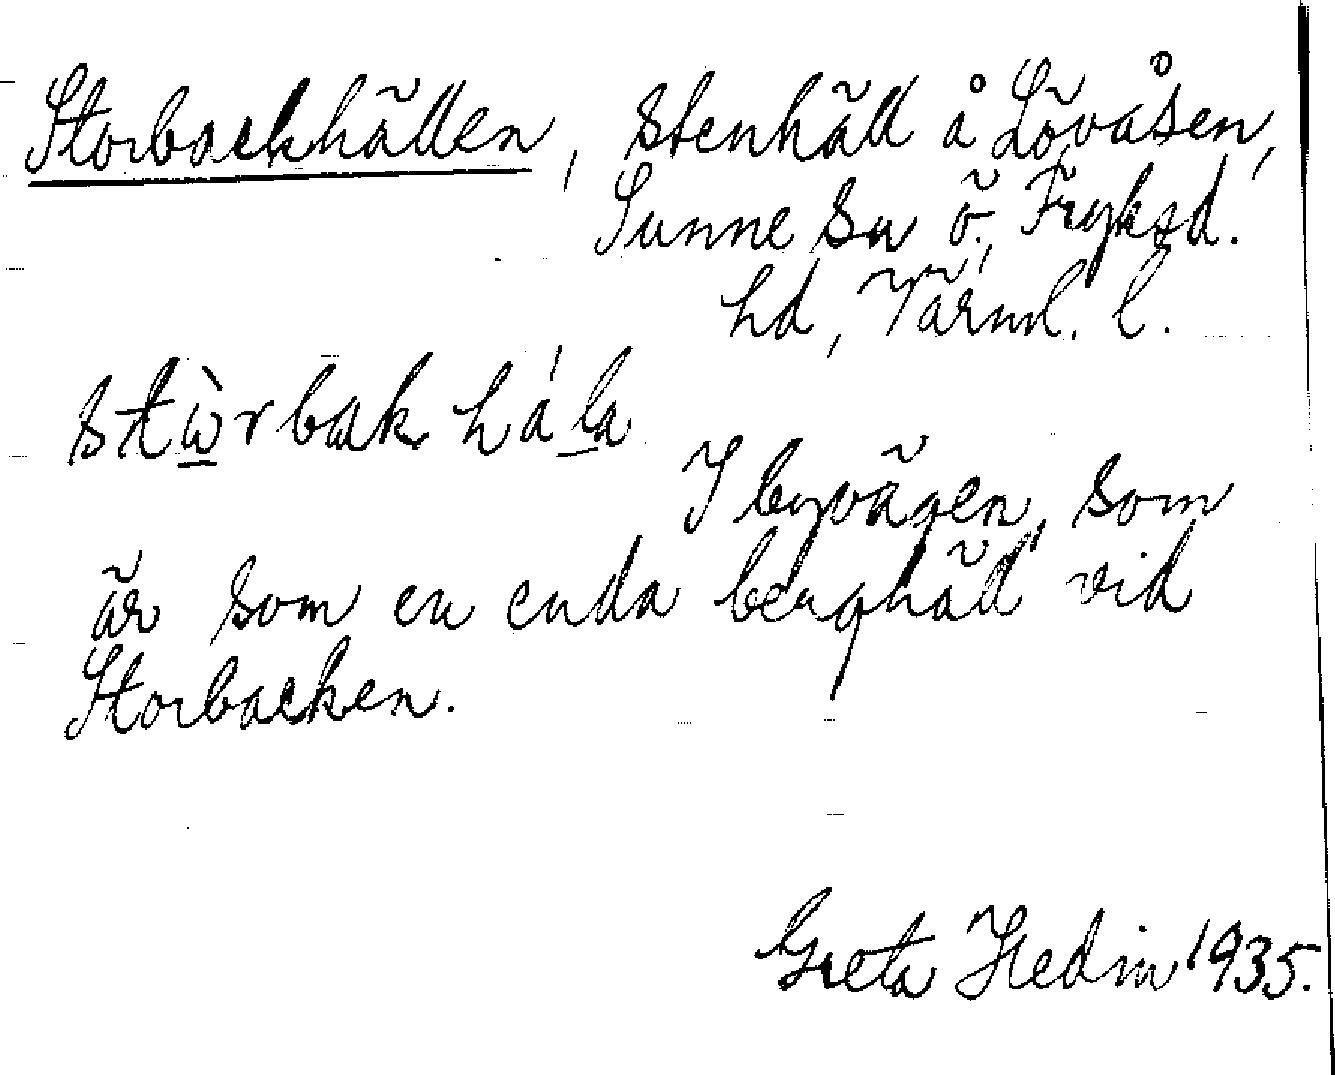 Storbackhällen, stenhäll å Lövåsen,
Sunne sn ö., Fryksd.
hd, Värml. l.
stὼrbak hála
I byvägen, som
är som en enda berghäll vid
Storbacken.
Greta Hedin 1935.